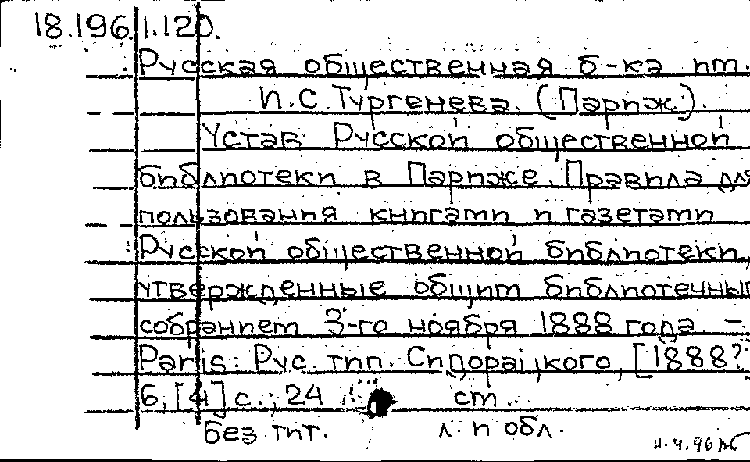 18.196.1.120.
Русская общественная б-ка им.
И.С. Тургенева. (Париж).
Устав Русской общественной
библиотеки в Париже. Правила для
пользования книгами и газетами
Русской общественной библиотеки,
утвержденные общим библиотечным
собранием 3-го ноября 1888 года. –
Paris: Рус. тип. Сидорацкого, [1888?
6, [4] с.; 24 см.
Без тит. л. и обл.